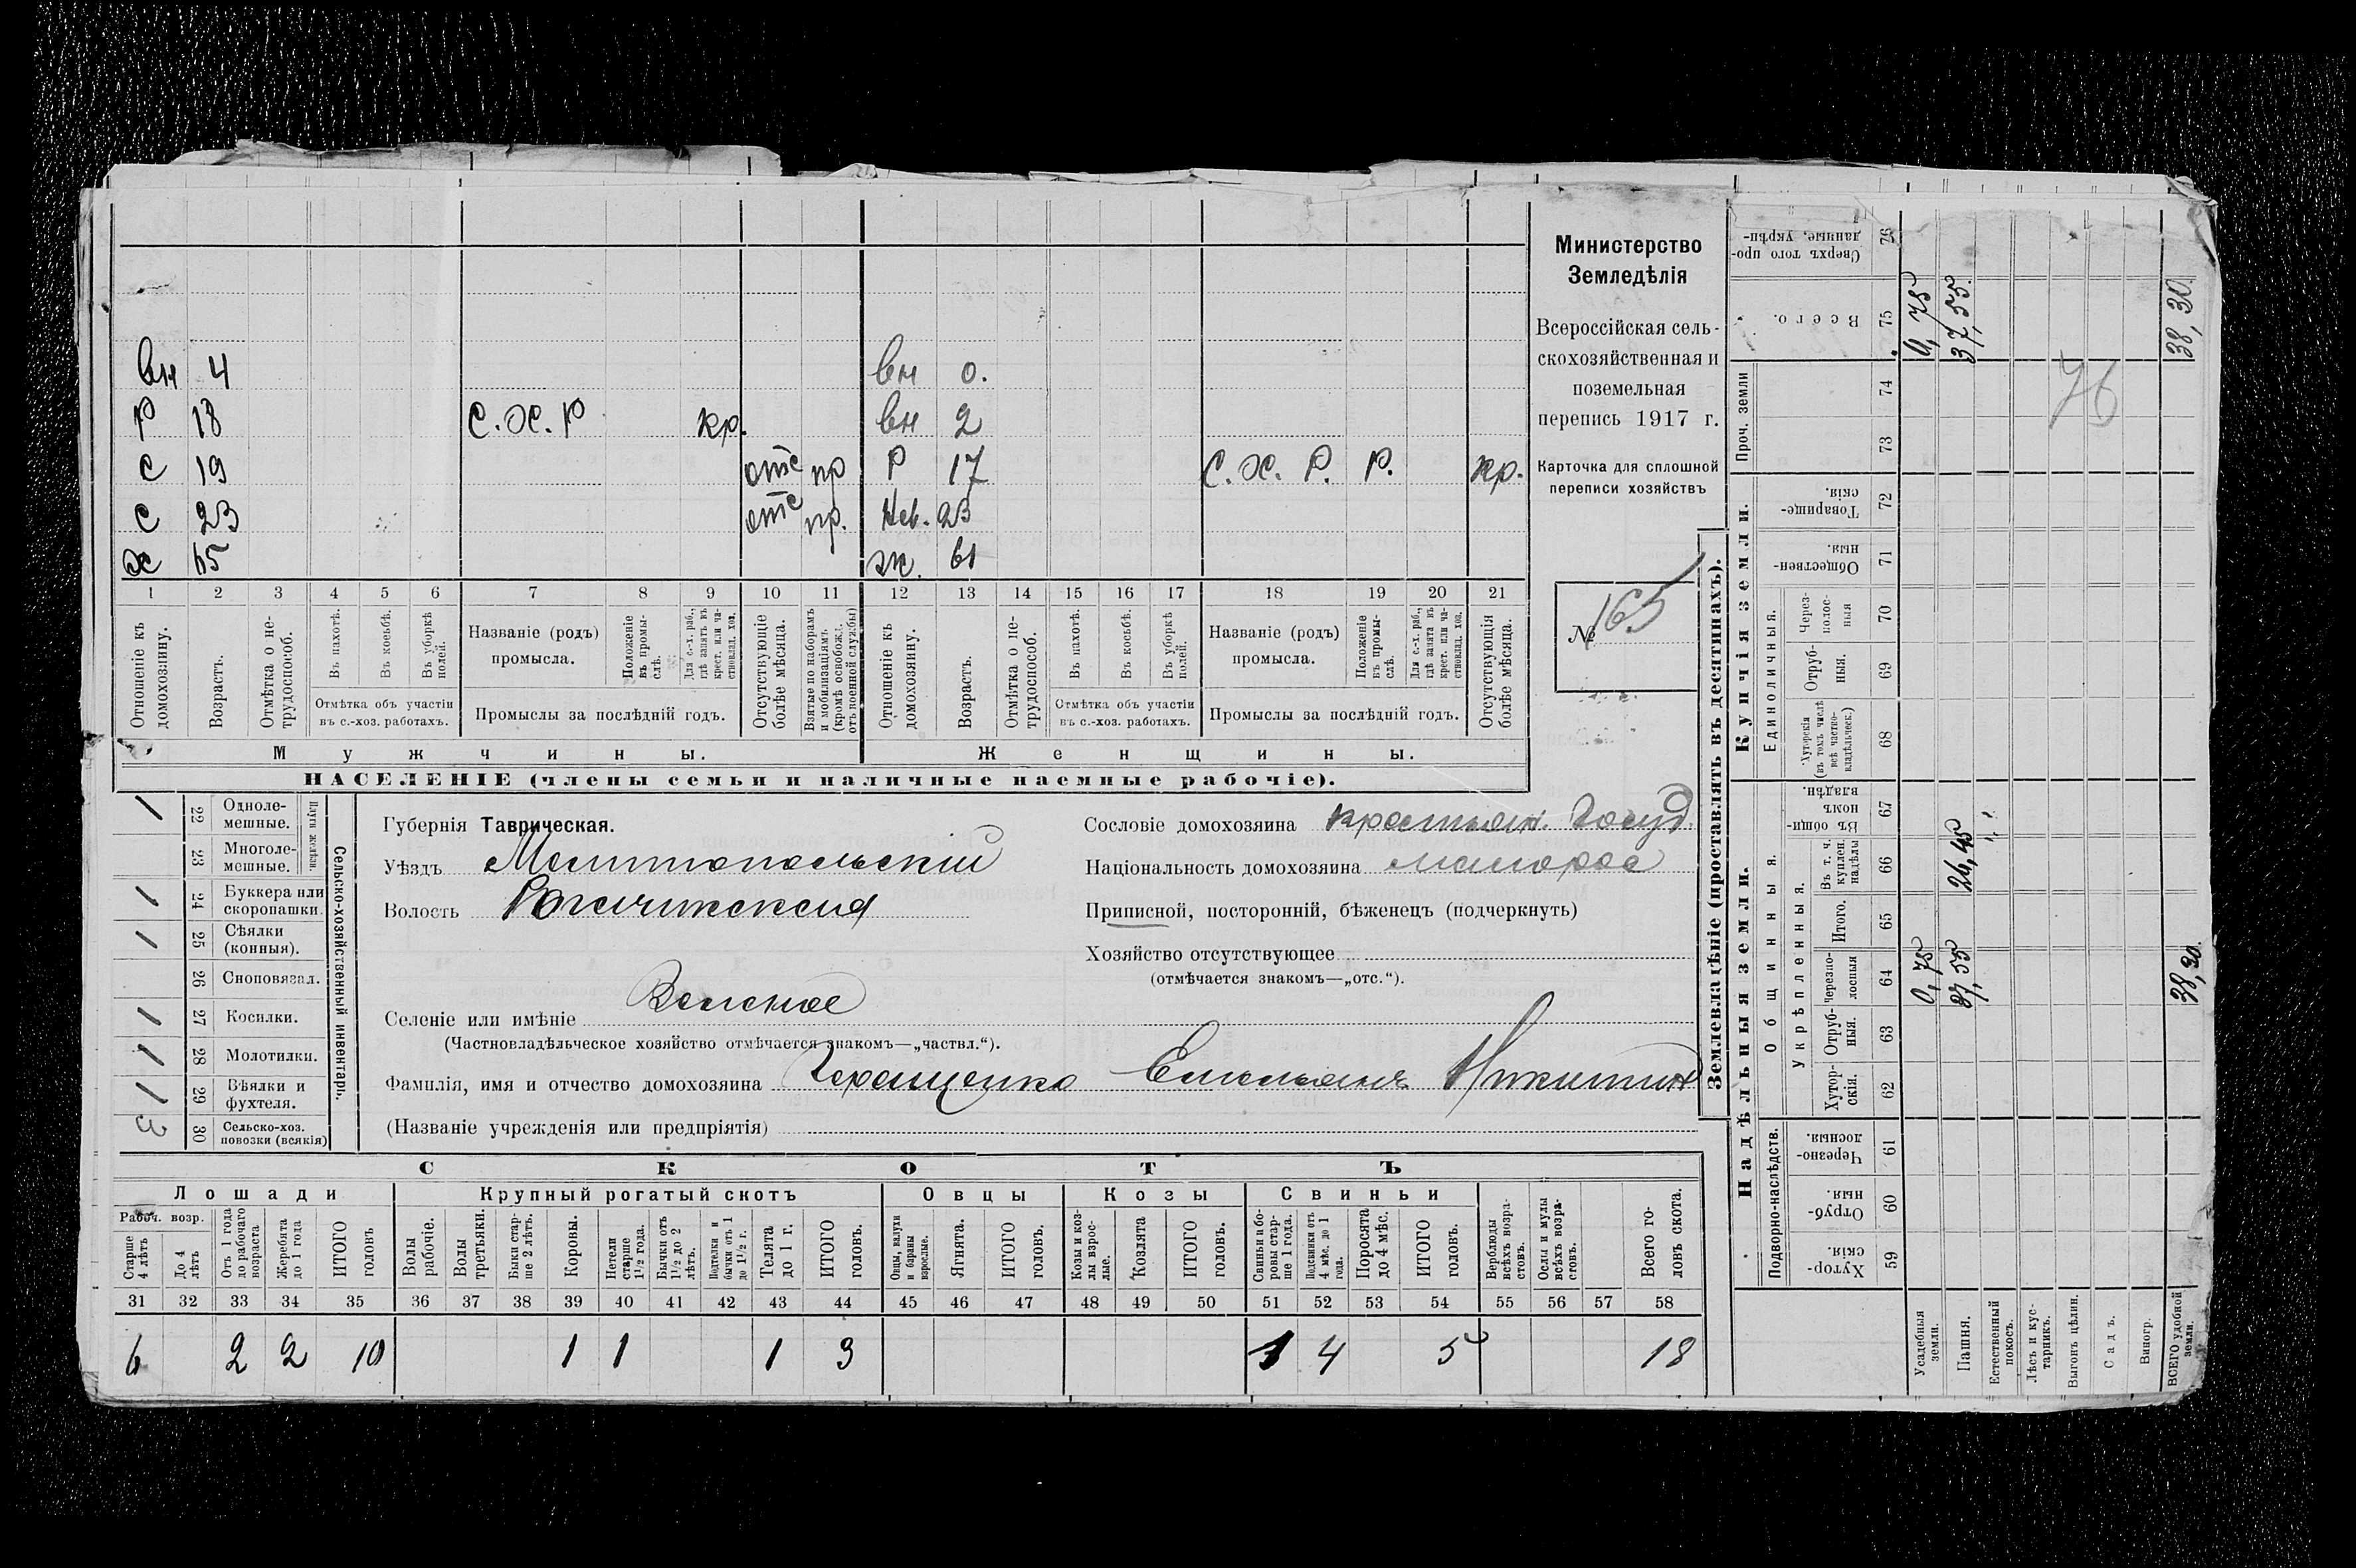 вн 4 вн 0.
Р 18 С.Х.Р кр. вн 2
С 19 отс пр Р 17 С.Х.Р. Р. кр.
С 23 отс пр. Нев. 23
Х 65 ж. 61
1 2 3 4 5 6 7 8 9 10 11 12 13 14 15 16 17 18 19 20 21
Отношеніе къ домохозяину.
Возрастъ.
Отмѣтка о не-трудоспособ.
Въ пахотѣ.
Въ косьбѣ.
Въ уборкѣ полей.
Отмѣтка объ участіи
въ с.-хоз. работахъ.
Названіе (родъ)
промысла.
Положеніе въ промы-слѣ.
Для с.-х. раб., гдѣ занятъ въ крест. или ча-стновлад. хоз.
Промыслы за послѣдній годъ.
Отсутствующіе болѣе мѣсяца.
Взятые по наборамъ и мобилизаціямъ. (кромѣ освобожд. отъ военной службы)
Отношеніе къ домохозяину.
Возрастъ.
Отмѣтка о не-трудоспособ.
Въ пахотѣ.
Въ косьбѣ.
Въ уборкѣ полей.
Отмѣтка объ участіи
въ с.-хоз. работахъ.
Названіе (родъ)
промысла.
Положеніе въ промы-слѣ.
Для с.-х. раб., гдѣ занята въ крест. или ча-стновлад. хоз.
Промыслы за послѣдній годъ.
Отсутствующія болѣе мѣсяца.
Мужчины. Женщины.
НАСЕЛЕНІЕ (члены семьи и наличные наемные рабочіе).
Министерство
Земледѣлія
Всероссійская сель-
скохозяйственная и
поземельная
перепись 1917 г.
Карточка для сплошной
переписи хозяйствъ
№ 165
Сельско-хозяйственный инвентарь.
Плуги желѣзн.
1 22 Одноле-мешные.
23 Многоле-мешные.
1 24 Буккера или скоропашки.
1 25 Сѣялки (конныя).
26 Сноповязал.
1 27 Косилки.
1 28 Молотилки.
1 29 Вѣялки и фухтеля.
3 30 Сельско-хоз. повозки (всякія)
Губернія Таврическая.
Уѣздъ Мелитопольскій
Волость Рогачикская
Селеніе или имѣніе
(Частновладѣльческое хозяйство отмѣчается знакомъ—„частвл.“).
Сословіе домохозяина крестьян. Госуд.
Національность домохозяина малорос
Приписной, посторонній, бѣженецъ (подчеркнуть)
Хозяйство отсутствующее
(отмѣчается знакомъ—„отс.“).
Фамилія, имя и отчество домохозяина Геращенко Емельянъ Никитин
(Названіе учрежденія или предпріятія)
СКОТЪ
Лошади Крупный рогатый скотъ Овцы Козы Свиньи
Рабоч. возр.
Старше 4 лѣтъ
До 4 лѣтъ
Отъ 1 года до рабочаго возраста
Жеребята до 1 года
ИТОГО головъ
Волы рабочіе.
Волы третьяки.
Быки стар-ше 2 лѣтъ.
Коровы.
Нетели старше 1½ года.
Бычки отъ 1½ до 2 лѣтъ.
Подтелки и бычки отъ 1 до 1½ г.
Телята до 1 г.
ИТОГО головъ.
Овцы, валухи и бараны взрослые.
Ягнята.
ИТОГО головъ.
Козы и коз-лы взрос-лые.
Козлята
ИТОГО головъ.
Свиньи и бо-ровы стар-ше 1 года.
Подсвинки отъ 4 мѣс. до 1 года.
Поросята до 4 мѣс.
ИТОГО головъ.
Верблюды всѣхъ возра-стовъ.
Ослы и мулы всѣхъ возра-стовъ.
Всего го-ловъ скота.
31 32 33 34 35 36 37 38 39 40 41 42 43 44 45 46 47 48 49 50 51 52 53 54 55 56 57 58
6 2 2 10 1 1 1 3 1 4 5 18
Землевладѣніе (проставлять въ десятинахъ).
Надѣльныя земли.
Купчія земли.
Проч. земли
Подворно-наслѣдств.
Общинныя.
Укрѣпленныя.
Единоличныя.
Хутор-скія. 59
Отруб-ныя. 60
Черезпо-лосныя. 61
Хутор-скія. 62
Отруб-ныя. 63
Черезпо-лосныя 64
Итого. 65
Въ т. ч. куплен. надѣлы 66
Въ общи-номъ владѣн. 67
Хуторскія (въ томъ числѣ всѣ частно-владѣльческ.) 68
Отруб-ныя. 69
Через-полос-ныя 70
Обществен-ныя 71
Товарище-скія. 72
73
74
Всего. 75
Сверхъ того про-данные, укрѣп- 76
Усадебныя земли. 0,75 0,75
Пашня. 37,55 24,45 37,55.
Естественный покосъ.
Лѣсъ и кус-тарникъ.
Выгонъ цѣлин.
Садъ.
Виногр.
ВСЕГО удобной земли. 38,30. 38,30
76